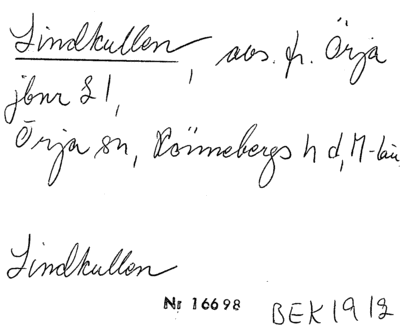 Lindkullen, avs. fr. Örja
jbnr 21,
Örja sn, Rönnebergs hd, M-län
Lindkullen
Nr 16698 BEK 1912